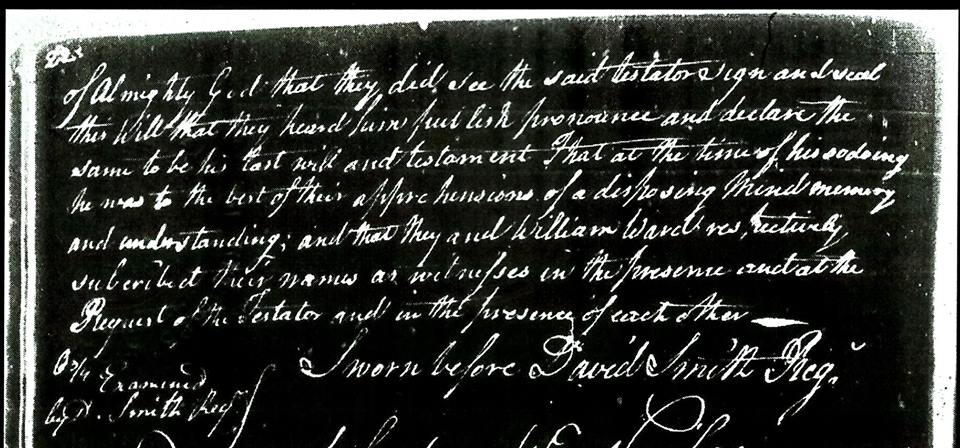 of Almighty God that they did see the said testator sign and seal
this Will that they heard him publish pronounce and declare the
same to be his last will and testament That at the time of his so doing
he was to the best of their apprehensions of a disposing Mind memory
and understanding; and that they and William Ward respectively
subscribed their names as witnesses in the presence and at the
Request of the Testator and in the presence of each other
Sworn before David Smith Regr.
Examined
by D. Smith Regr